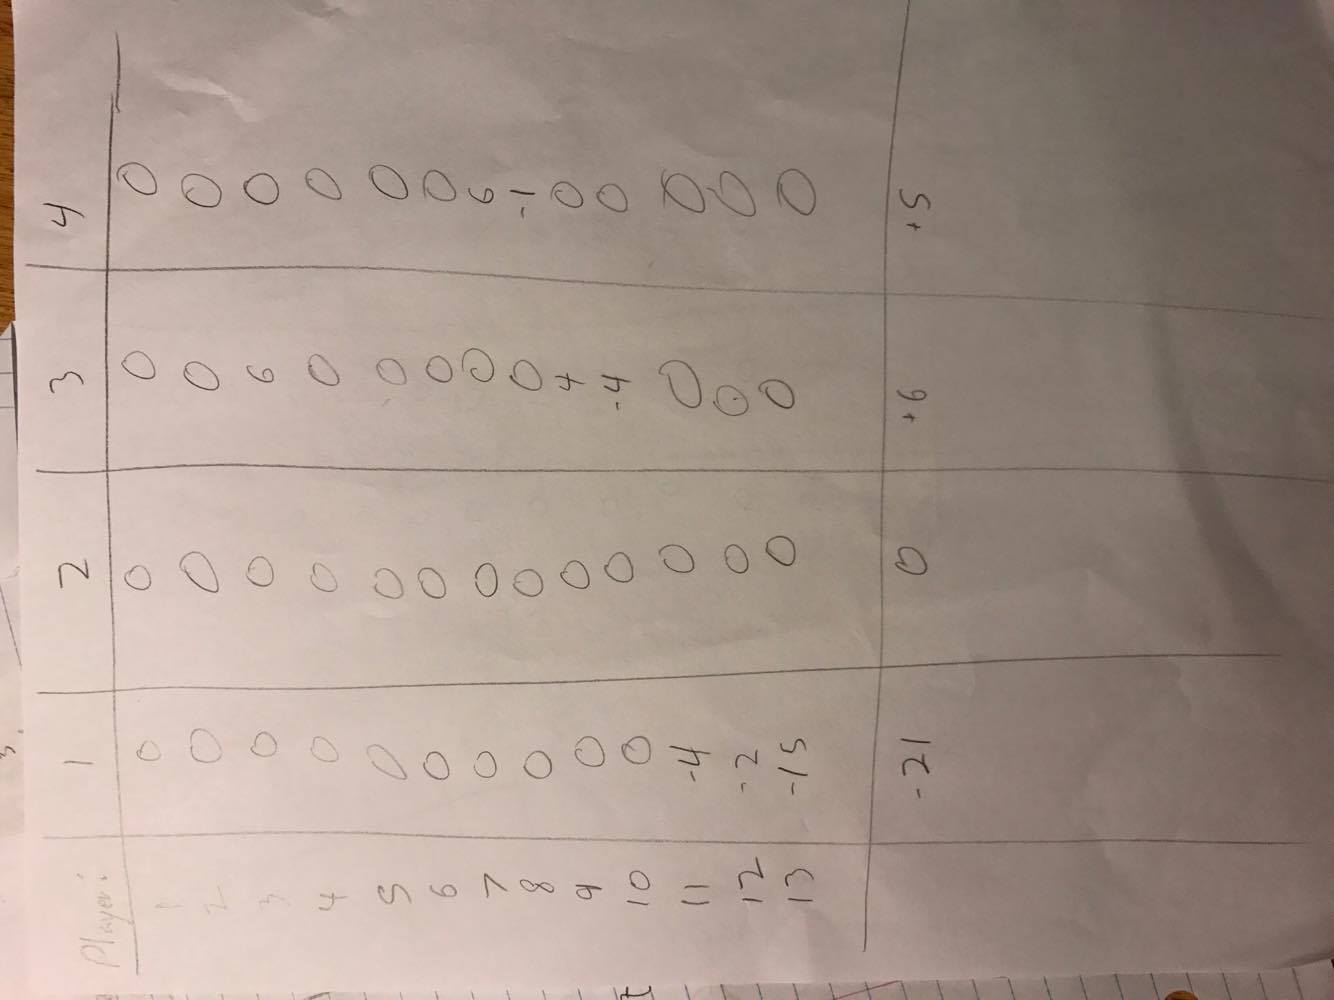 Player: 1 2 3 4
1 0 0 0 0
2 0 0 0 0
3 0 0 6 0
4 0 0 0 0
5 0 0 0 0
6 0 0 0 0
7 0 0 0 6
8 0 0 0 -1
9 0 0 4 0
10 0 0 -4 0
11 -4 0 0 0
12 -2 0 0 0
13 -15 0 0 0
-21 0 +6 +5